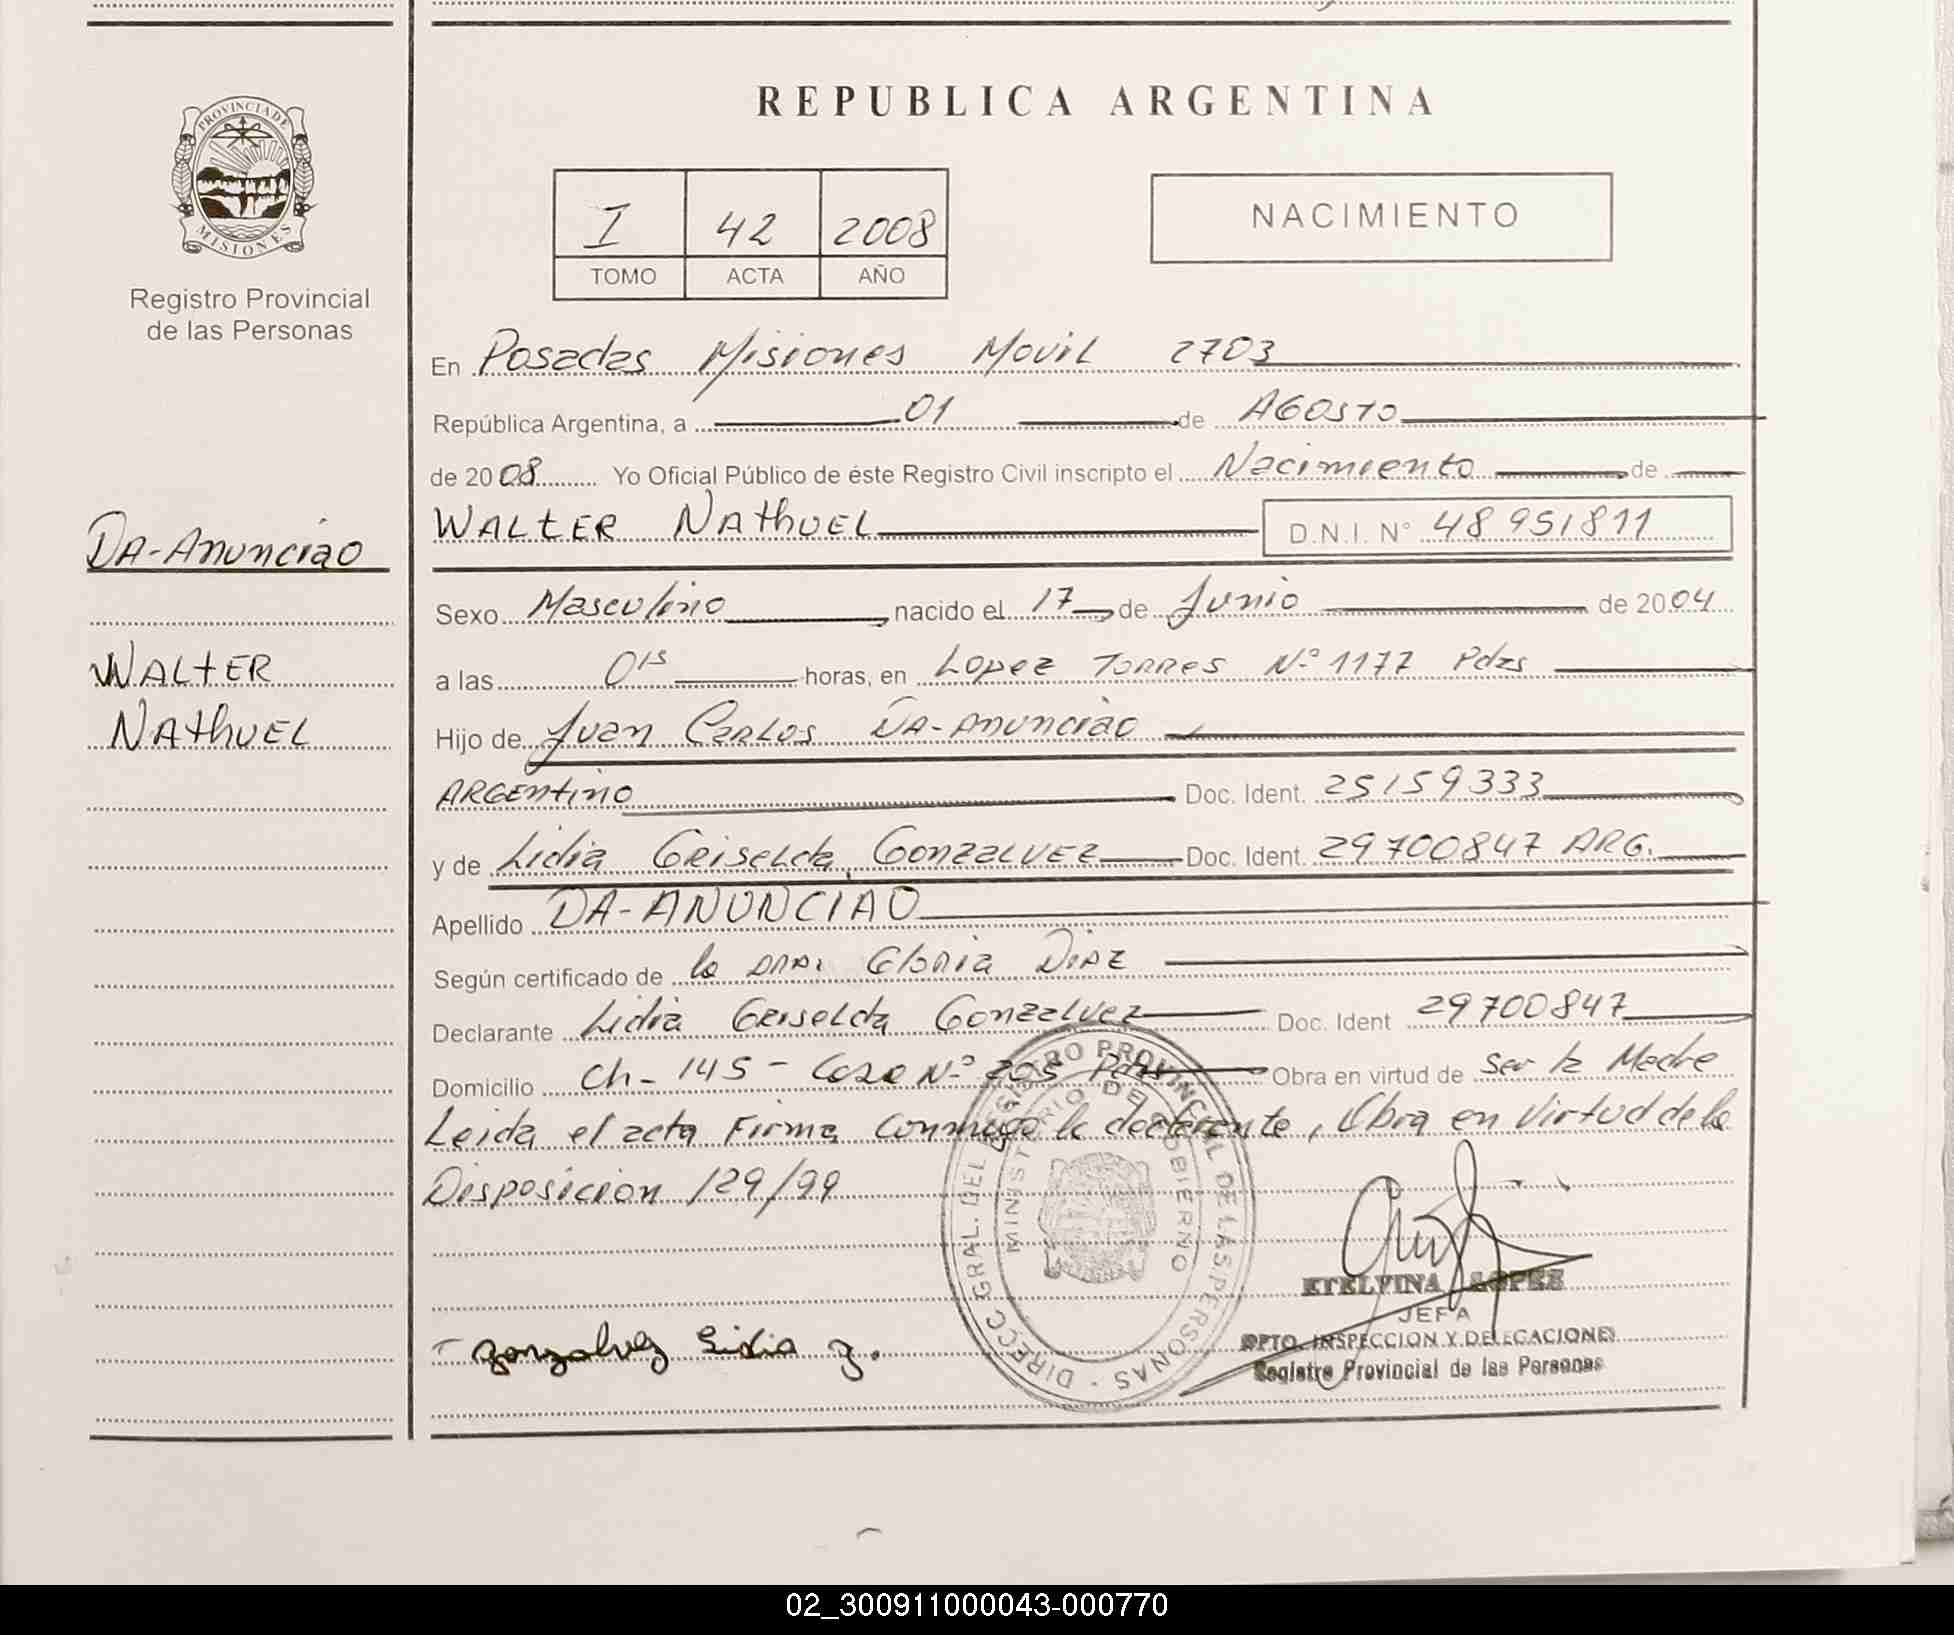 REPUBLICA ARGENTINA
PROVINCIA DE
MISIONES
Registro Provincial
de las Personas
I 42 2008
TOMO ACTA AÑO
NACIMIENTO
En Posadas Misiones Movil 2703
República Argentina, a 01 de AGOSTO
de 2008 Yo Oficial Público de éste Registro Civil inscripto el Nacimiento de
WALTER NAthUEL D.N.I. N° 48951811
DA-Anunciao
WALTER
NAthUEL
Sexo Masculino nacido el 17 de Junio de 2004
a las 015 horas, en Lopez Torres N° 1177 Pdas
Hijo de Juan Carlos DA-Anunciao
ARGEntino Doc. Ident. 25159333
y de Lidia Griselda Gonzalvez Doc. Ident. 29700847 ARG.
Apellido DA-ANUNCIAO
Según certificado de la DRA. Gloria Diaz
Declarante Lidia Griselda Gonzalvez Doc. Ident 29700847
Domicilio Ch- 145 - Casa N° 205 Pdas Obra en virtud de Ser la Madre
Leida el acta Firma conmigo la declarante, Obra en Virtud de la
Disposición 129/99
DIRECC. GRAL. DEL REGISTRO PROVINCIAL DE LAS PERSONAS -
MINISTERIO DE GOBIERNO
gonzalvez Lidia g.
ETELVINA LOPEZ
JEFA
DPTO. INSPECCION Y DELEGACIONES
Registro Provincial de las Personas
02_300911000043-000770